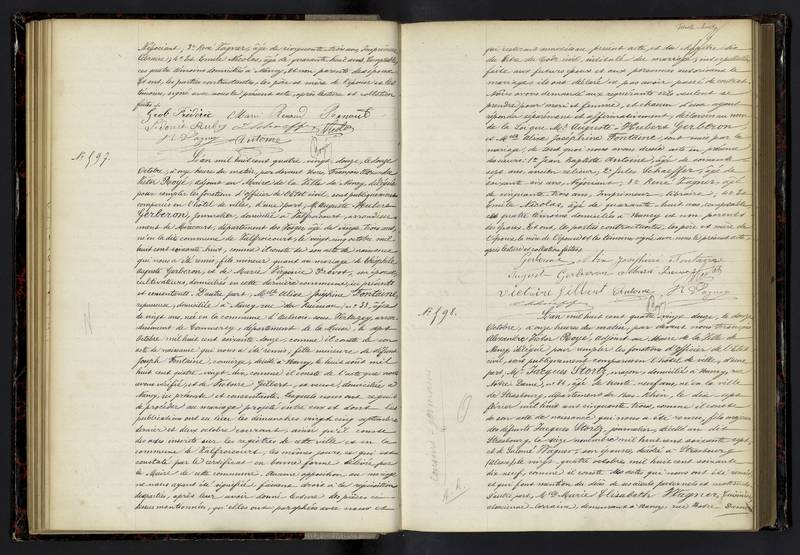 Négociant, 3° René Vagner, âgé de cinquante trois ans, Imprimeur
libraire; 4° et Emile Nicolas, âgé de quarante huit ans, comptable,
ces quatre témoins domiciliés à Nancy, et non parents des époux.
Et ont, les parties contractantes, les père et mère de l'épouse et les
témoins, signé avec nous le présent acte, après lecture et collation
faites.
Antoine
N° 597.
L'an mil huit cent quatre vingt douze, le douze
Octobre, à onze heures du matin, par devant nous François Alexandre
Victor Boyé, adjoint au Maire de la Ville de Nancy, délégué
pour remplir les fonctions d'Officier de l'Etat civil, sont publiquement
comparus en l'hôtel de ville, d'une part, M. Auguste Hubert
Gerberon, domicilié à Valfroicourt, arrondisse-
ment de Mirecourt, département des Vosges, âgé de vingt trois ans,
né en la dite commune de Valfroicourt, le vingt cinq octobre mil
huit cent soixante huit, comme il conste de son acte de naissance
qui nous a été remis, fils mineur quant au mariage de
Auguste Gerberon, et de Marie Virginie Prévot, son épouse,
cultivateurs, domiciliés en cette dernière commune, ici présents
et consentants. D'autre part, Melle Alisa Joséphine Fontaine,
repasseuse, domiciliée à Nancy, rue du Ruisseau, n° 33, âgée
de vingt ans, née en la commune d'Aulnois sous Vertuzey, arron-
dissement de Commercy, département de la Meuse, le sept
Octobre mil huit cent soixante douze, comme il conste de son
acte de naissance qui nous a été remis, fille mineure de défunt
Joseph Fontaine, décédé à Nancy, le huit août mil
huit cent quatre vingt dix, comme il conste de l'acte que nous
avons vérifié, et de Victoire Gilbert, sa veuve, domiciliée à
Nancy, ici présente et consentante. Lesquels nous ont requis
de procéder au mariage projeté entre eux et dont les
publications ont eu lieu les dimanches vingt cinq septembre
dernier et deux octobre courant, ainsi qu'il conste
des actes inscrits sur les registres de cette ville et en la
commune de Valfroicourt, les mêmes jours, ce qui est
constaté par le certificat en bonne forme délivré par
le Maire de cette commune. Aucune opposition au mariage
ne nous ayant été signifiée, faisant droit à la réquisition
des parties, après leur avoir donné lecture des pièces ci-
dessus mentionnées, qu'elles ont paraphées avec nous et
qui resteront annexées au présent acte et du chapitre six
du titre du Code civil, intitulé du mariage, sur interpellation
faite aux futurs époux et aux personnes autorisant le
mariage ils ont déclaré ne pas avoir passé de contrat.
Nous avons demandé aux requérants s'ils veulent se
prendre pour mari et femme, et chacun d'eux ayant
répondu séparément et affirmativement, déclarons au nom
de la loi que M. Auguste Hubert Gerberon
et Melle Alisa Joséphine Fontaine sont unis par le
mariage; de tout quoi nous avons dressé acte en présence
des sieurs: 1° Jean Baptiste Antoine, âgé de soixante
sept ans, ancien relieur; 2° Jules Schaeffer, âgé de
soixante six ans, Négociant; 3° René Vagner, âgé
de cinquante trois ans, Imprimeur libraire, 4° et
Emile Nicolas, âgé de quarante huit ans, comptable
ces quatre témoins domiciliés à Nancy et non parents
des époux. Et ont, les parties contractantes, les père et mère de
l'époux, la mère de l'épouse et les témoins signé avec nous le présent acte
après lecture et collation faites.
Gerberon Alisa Joséphine Fontaine
August Gerberon Maria
Victoire Gilbert Antoine
N° 598.
L'an mil huit cent quatre vingt douze, le douze
Octobre, à onze heures du matin, par devant nous François
Alexandre Victor Boyé, adjoint au Maire de la Ville de
Nancy, délégué pour remplir les fonctions d'Officier de l'Etat
civil, sont publiquement comparus en l'hôtel de ville, d'une
part, M. Jacques Stortz, maçon, domicilié à Nancy, rue
Notre Dame, âgé de trente neuf ans, né en la ville
de Strasbourg, département du Bas-Rhin, le dix sept
février mil huit cent cinquante trois, comme il conste
de son acte de naissance, qui nous a été remis, fils majeur
des défunts Jacques Stortz, journalier, décédé au dit
Strasbourg le seize novembre mil huit cent soixante sept,
et de Salomé Wagner, son épouse, décédée à Strasbourg
(Alsace) le vingt quatre octobre mil huit cent soixante
dix neuf, comme il conste des actes qui nous ont été remis
et qui font mention du décès de ses aïeuls paternels et maternels.
D'autre part, Melle Marie Elisabeth Wagner, cuisinière
alsacienne-lorraine, demeurant à Nancy, rue Notre-Dame
cousins germains